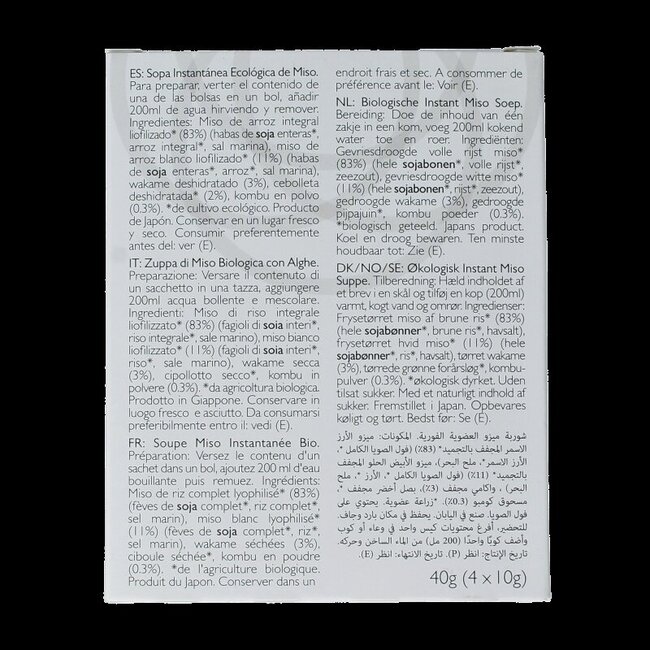 ES: Sopa Instantánea Ecológica de Miso.
Para preparar, verter el contenido de
una de las bolsas en un bol, añadir
200ml de agua hirviendo y remover.
Ingredientes: Miso de arroz integral
liofilizado* (83%) (habas de soja enteras*,
arroz integral*, sal marina), miso de
arroz blanco liofilizado* (11%) (habas
de soja enteras*, arroz*, sal marina),
wakame deshidratado (3%), cebolleta
deshidratada* (2%), kombu en polvo
(0.3%). *de cultivo ecológico. Producto
de Japón. Conservar en un lugar fresco
y seco. Consumir preferentemente
antes del: ver (E).
IT: Zuppa di Miso Biologica con Alghe.
Preparazione: Versare il contenuto di
un sacchetto in una tazza, aggiungere
200ml acqua bollente e mescolare.
Ingredienti: Miso di riso integrale
liofilizzato* (83%) (fagioli di soia interi*,
riso integrale*, sale marino), miso bianco
liofilizzato* (11%) (fagioli di soia interi*,
riso*, sale marino), wakame secca
(3%), cipollotto secco*, kombu in
polvere (0.3%). *da agricoltura biologica.
Prodotto in Giappone. Conservare in
luogo fresco e asciutto. Da consumarsi
preferibilmente entro il: vedi (E).
FR: Soupe Miso Instantanée Bio.
Préparation: Versez le contenu d'un
sachet dans un bol, ajoutez 200 ml d'eau
bouillante puis remuez. Ingrédients:
Miso de riz complet lyophilisé* (83%)
(fèves de soja complet*, riz complet*,
sel marin), miso blanc lyophilisé*
(11%) (fèves de soja complet*, riz*,
sel marin), wakame séchées (3%),
ciboule séchée*, kombu en poudre
(0.3%). *de l'agriculture biologique.
Produit du Japon. Conserver dans un
endroit frais et sec. A consommer de
préférence avant le: Voir (E).
NL: Biologische Instant Miso Soep.
Bereiding: Doe de inhoud van één
zakje in een kom, voeg 200ml kokend
water toe en roer. Ingrediënten:
Gevriesdroogde volle rijst miso*
(83%) (hele sojabonen*, volle rijst*,
zeezout), gevriesdroogde witte miso*
(11%) (hele sojabonen*, rijst*, zeezout),
gedroogde wakame (3%), gedroogde
pijpajuin*, kombu poeder (0.3%).
*biologisch geteeld. Japans product.
Koel en droog bewaren. Ten minste
houdbaar tot: Zie (E).
DK/NO/SE: Økologisk Instant Miso
Suppe. Tilberedning: Hæld indholdet af
et brev i en skål og tilføj en kop (200ml)
varmt, kogt vand og omrør. Ingredienser:
Frysetørret miso af brune ris* (83%)
(hele sojabønner*, brune ris*, havsalt),
frysetørret hvid miso* (11%) (hele
sojabønner*, ris*, havsalt), tørret wakame
(3%), tørrede grønne forårsløg*, kombu-
pulver (0.3%). *økologisk dyrket. Uden
tilsat sukker. Med et naturligt indhold af
sukker. Fremstillet i Japan. Opbevares
køligt og tørt. Bedst før: Se (E).
شوربة ميزو العضوية الفورية. المكونات: ميزو الأرز
الاسمر المجفف بالتجميد* (83٪) (فول الصويا الكامل*،
الأرز الاسمر*، ملح البحر)، ميزو الأبيض الحلو المجفف
بالتجميد* (11٪) (فول الصويا الكامل*، الأرز*، ملح
البحر)، واكامي مجفف (3٪)، بصل أخضر مجفف*،
مسحوق كومبو (0.3٪). *زراعة عضوية. يحتوي على
فول الصويا. صنع في اليابان. يحفظ في مكان بارد وجاف.
للتحضير، أفرغ محتويات كيس واحد في وعاء أو كوب
وأضف كوبًا واحدًا (200 مل) من الماء الساخن وحركه.
تاريخ الإنتاج: انظر (P). تاريخ الانتهاء: انظر (E).
40g (4 x 10g)